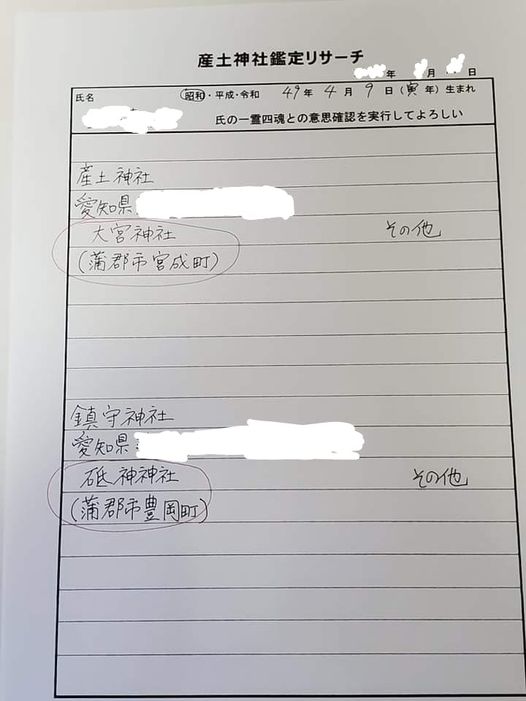 産土神社鑑定リサーチ
年 月 日
氏名 昭和・平成・令和 49年 4月 9日(寅年)生まれ
氏の一霊四魂との意思確認を実行してよろしい
産土神社
愛知県
大宮神社 その他
(蒲郡市宮成町)
鎮守神社
愛知県
砥神神社 その他
(蒲郡市豊岡町)